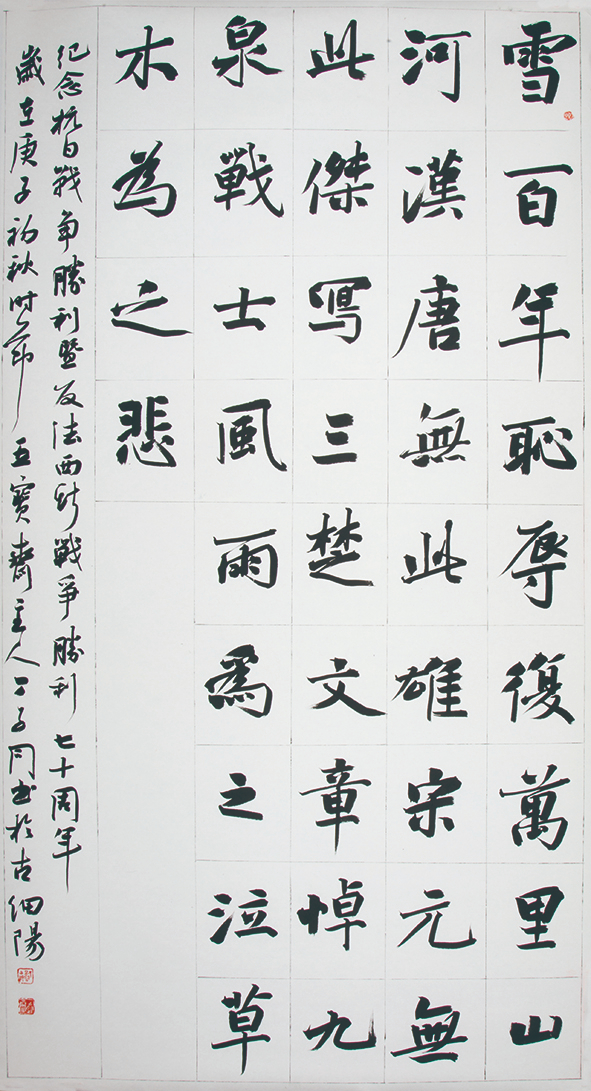 雪百年恥辱復萬里山
河漢唐無此雄宋元無
此傑寫三楚文章悼九
泉戰士風雨為之泣草
木為之悲
紀念抗日戰爭勝利暨反法西斯戰爭勝利七十周年
歲在庚子初秋時節玉寶齋主人丁子同書於古細陽